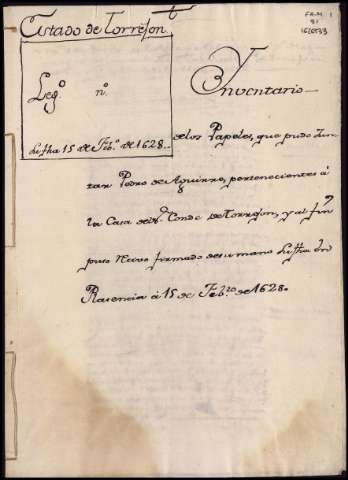 Estado de Torrejon
Leg.º n.º
su fha 15 de Feb.º de 1628
FR.M. 1
91
Ynventario
de los Papeles, que pudo Jun
tar Pedro de Aguirre, pertenecientes á
la Casa de el Conde de Torrejon, y al fin
puso Recivo firmado de su mano su fha en
Plasencia á 15 de Feb.ro de 1628.